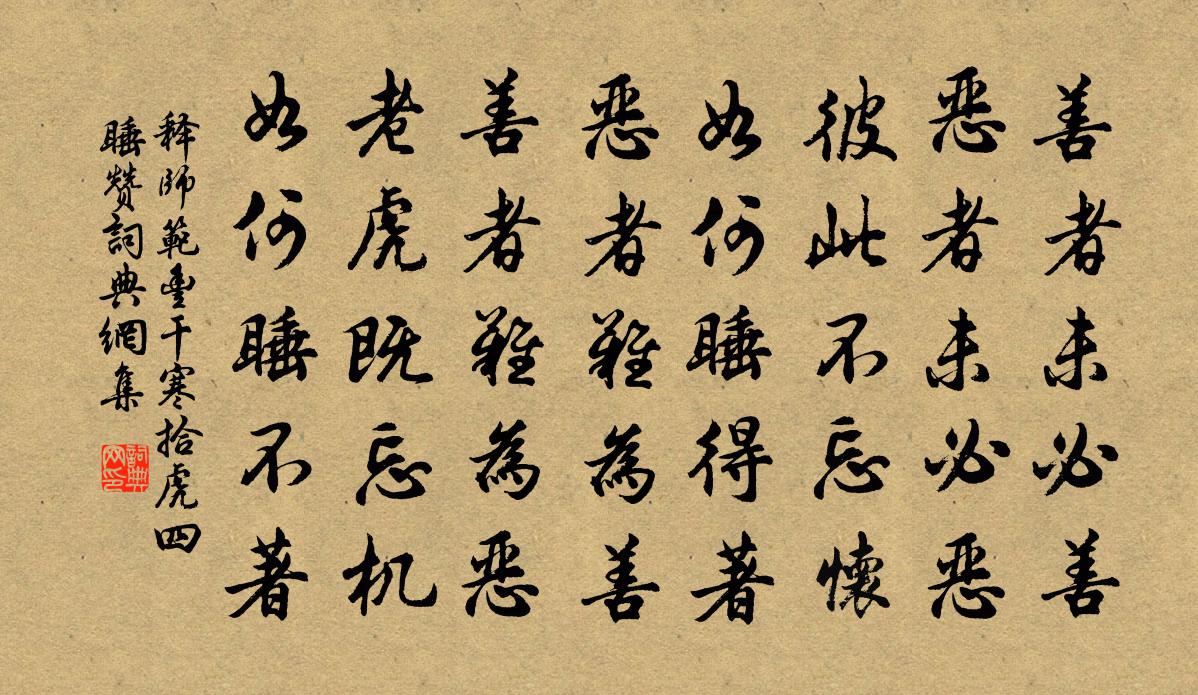 善者未必善
惡者未必惡
彼此不忘懷
如何睡得著
惡者難為善
善者難為惡
老虎既忘机
如何睡不著
释師範豐干寒拾虎四
睡赞詞典網集
詞典
网印